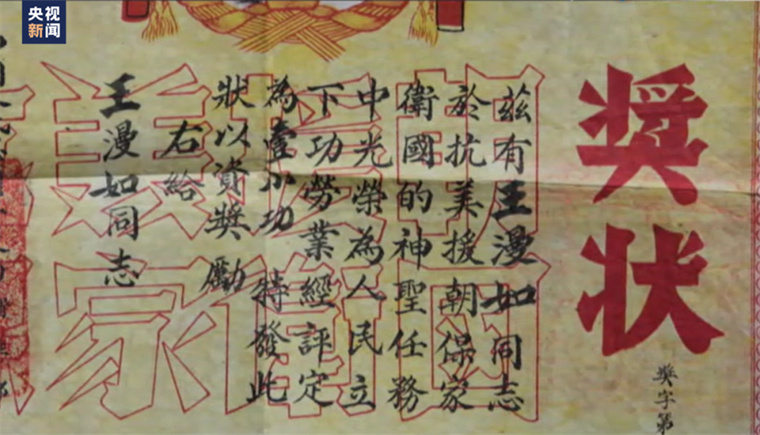 央视
新闻
奬状
奬字第
茲有王漫如同志
於抗美援朝保家
衛國的神聖任務
中光榮為人民立
下功勞業經評定
為壹小功 特發此
狀以資奬勵
右給
王漫如同志
美援朝
家衛國